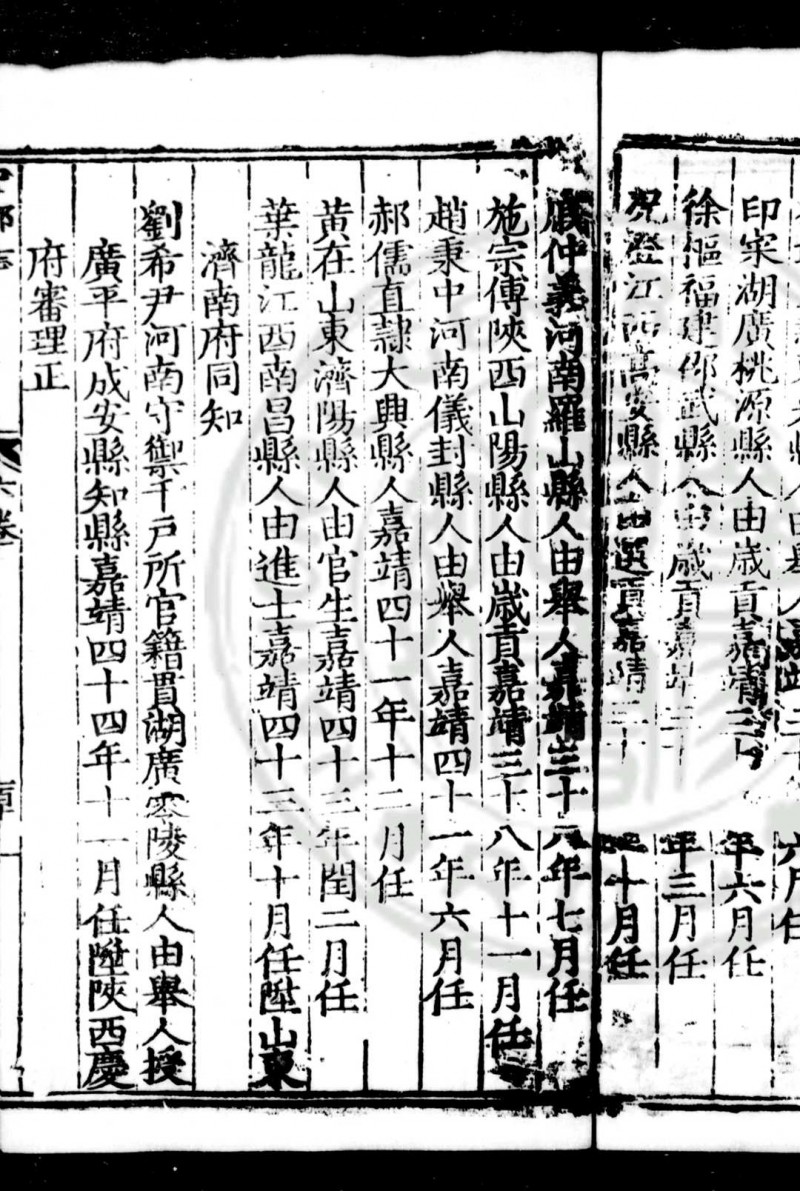 人由舉人嘉靖三十
六月任
印宋湖廣桃源縣人由歲貢嘉靖三十
年六月任
徐漚福建邵武縣人由歲貢嘉靖三十
年三月任
況澄江西高安縣人由選貢嘉靖三十
十月任
仲義河南羅山縣人由舉人嘉靖三十八年七月任
施宗傳陝西山陽縣人由歲貢嘉靖三十八年十一月任
趙秉中河南儀封縣人由舉人嘉靖四十一年六月任
郝儒直隷大興縣人嘉靖四十一年十二月任
黃在山東濟陽縣人由官生嘉靖四十三年閏二月任
葉龍江西南昌縣人由進士嘉靖四十三年十月任陞山東
濟南府同知
劉希尹河南守禦千戶所官籍貫湖廣零陵縣人由舉人授
廣平府成安縣知縣嘉靖四十四年十一月任陞陝西慶
府審理正
六卷